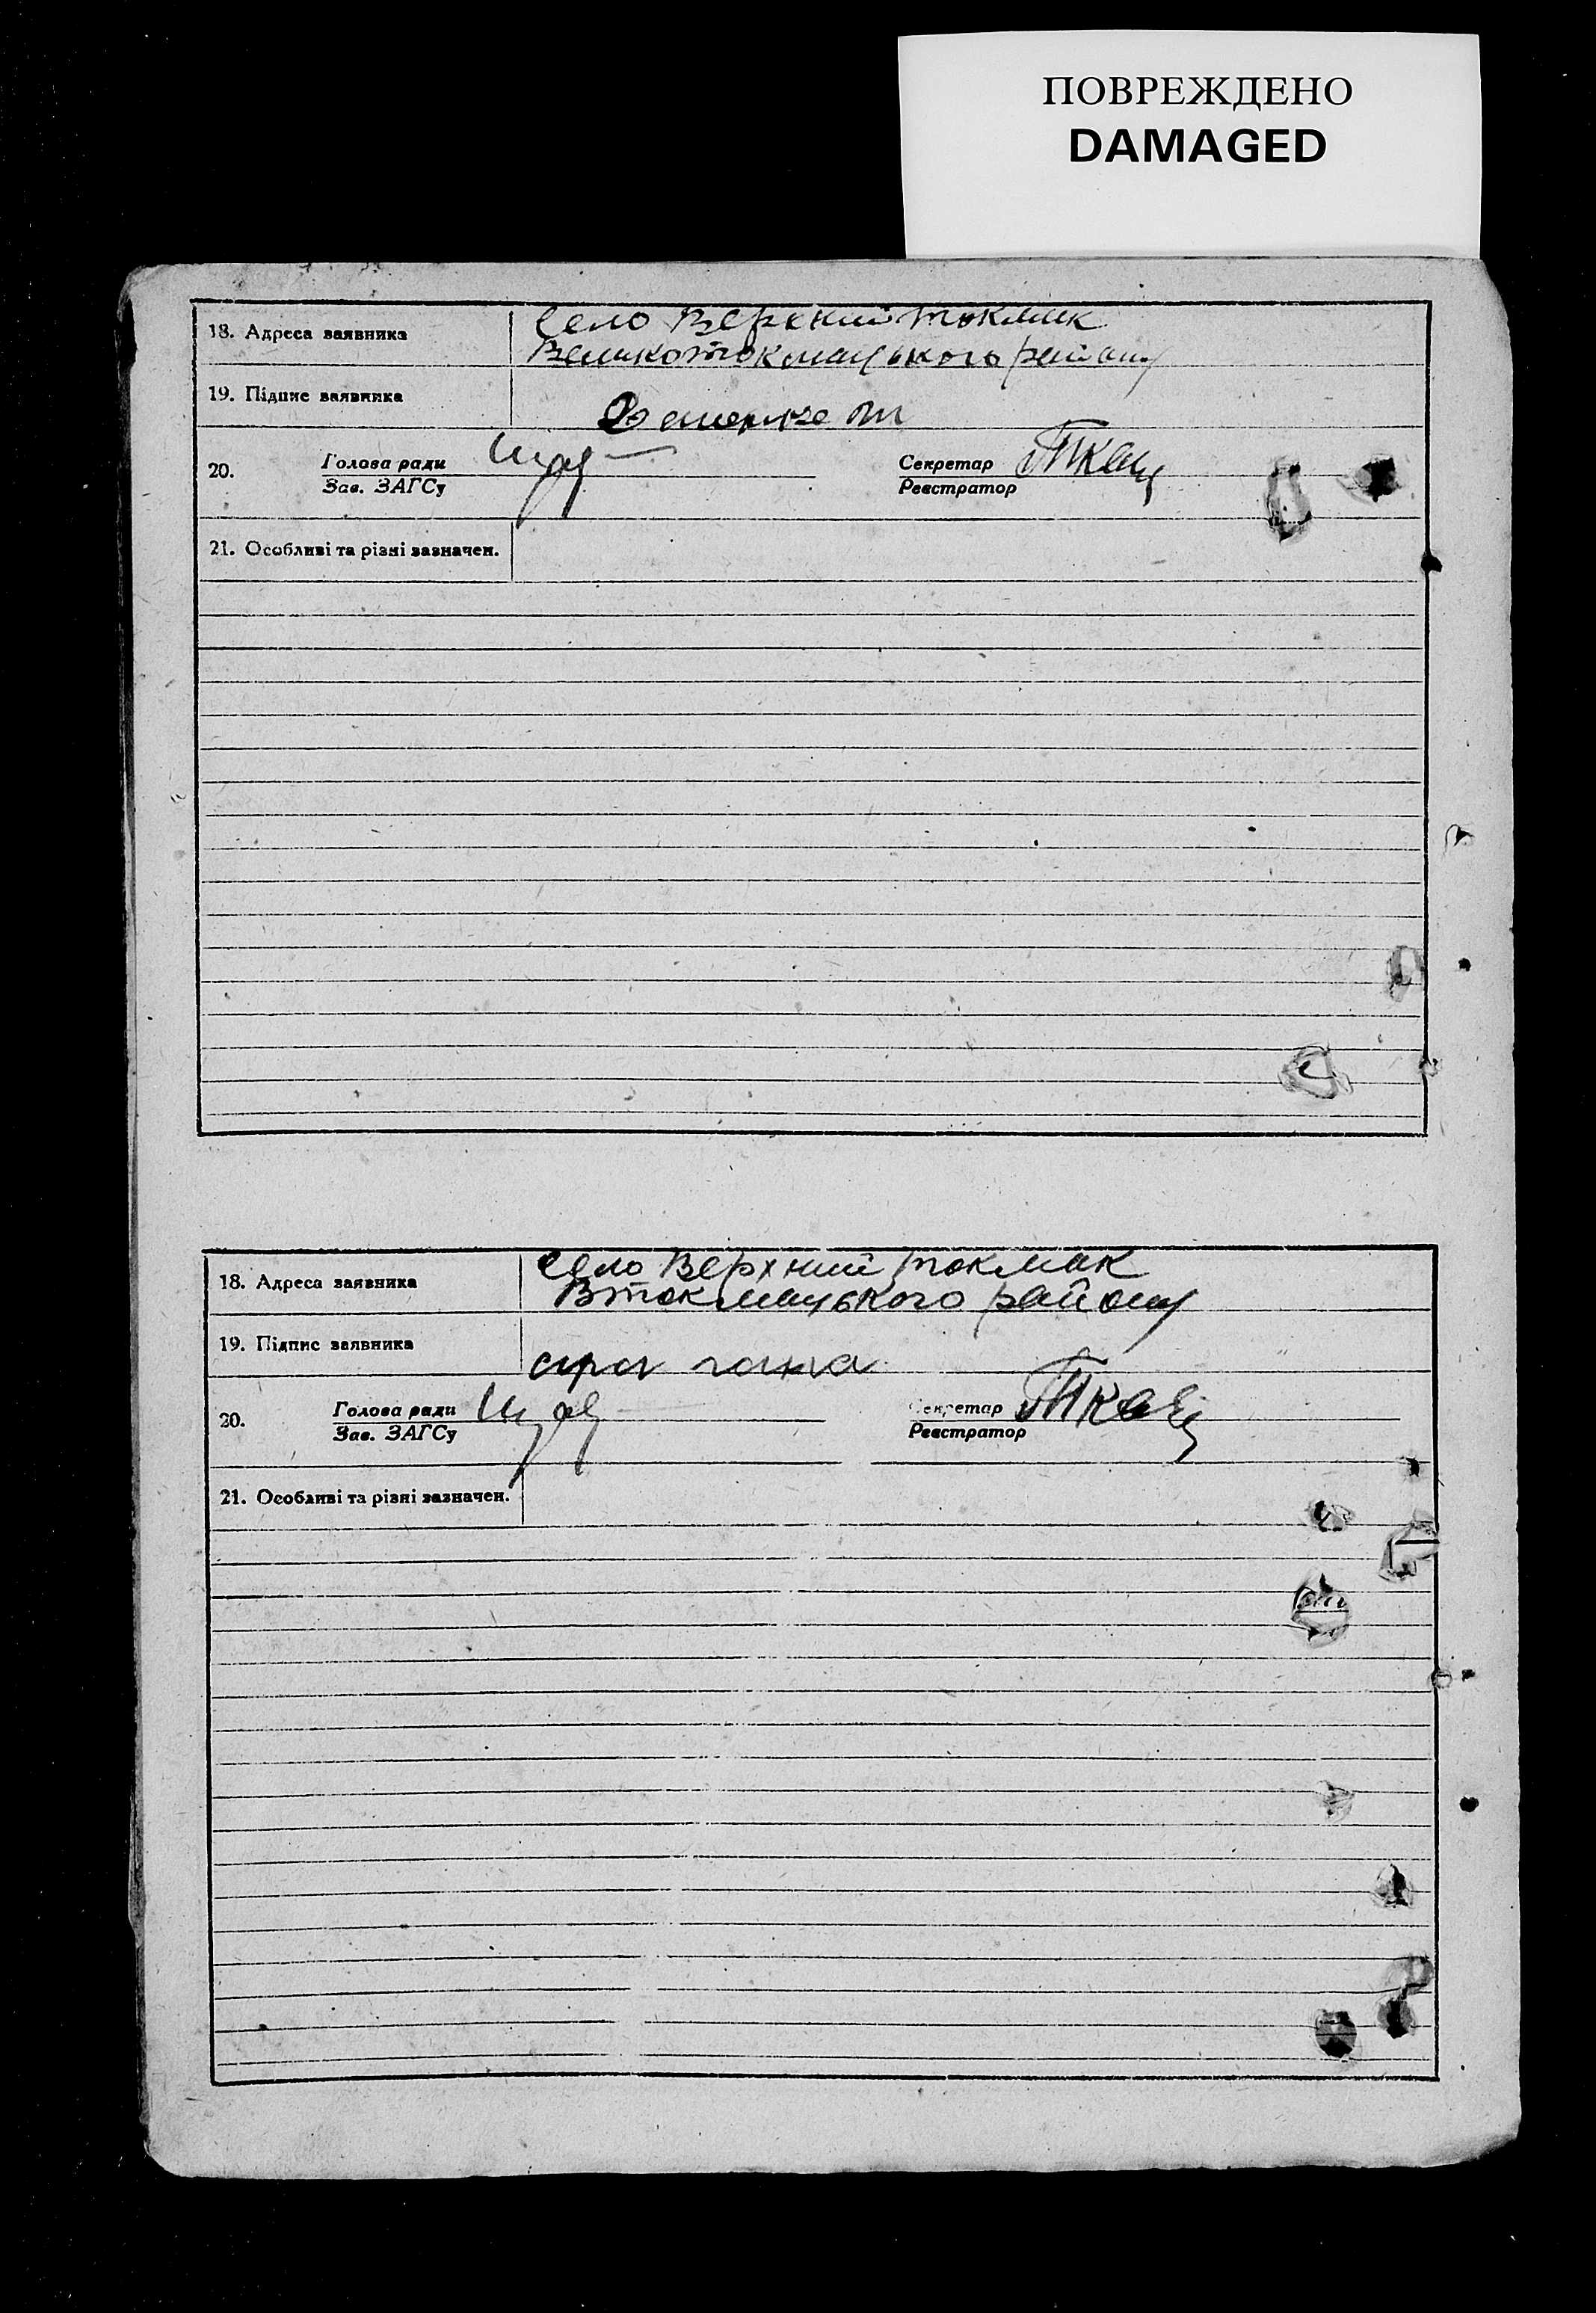 ПОВРЕЖДЕНО
DAMAGED
18. Адреса заявника
село Верхний токмак
Великотокмацького району
19. Підпис заявника
20. Голова ради
Зав. ЗАГСу
Секретар Ткач
Реєстратор
21. Особливі та різні зазначен.
18. Адреса заявника
село Верхний токмак
Втокмацького району
19. Підпис заявника
20. Голова ради
Зав. ЗАГСу
Секретар Ткач
Реєстратор
21. Особливі та різні зазначен.